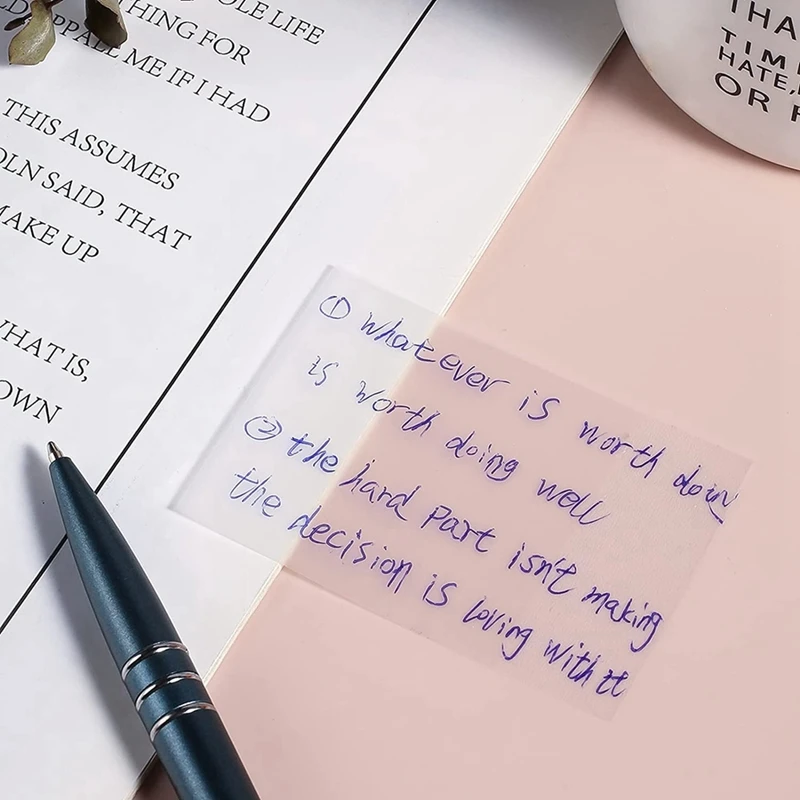 OLE LIFE
THING FOR
APPALL ME IF I HAD
THIS ASSUMES
OLN SAID, THAT
MAKE UP
WHAT IS,
OWN
THA
TIM
HATE,
OR
① whatever is worth doing
is worth doing well
② the hard part isn't making
the decision is loving with it